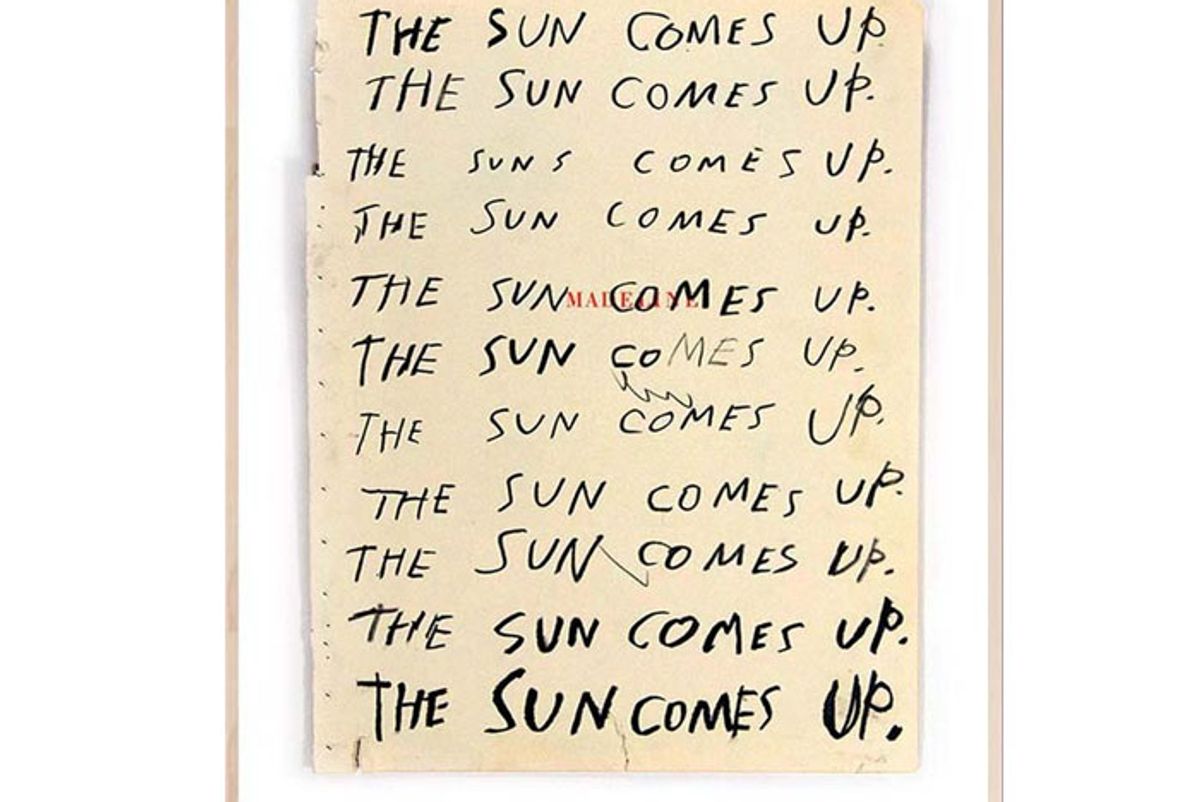 THE SUN COMES UP.
THE SUN COMES UP.
THE SUNS COMES UP.
THE SUN COMES UP.
THE SUN COMES UP.
MADELINE
THE SUN COMES UP.
THE SUN COMES UP.
THE SUN COMES UP.
THE SUN COMES UP.
THE SUN COMES UP.
THE SUN COMES UP.